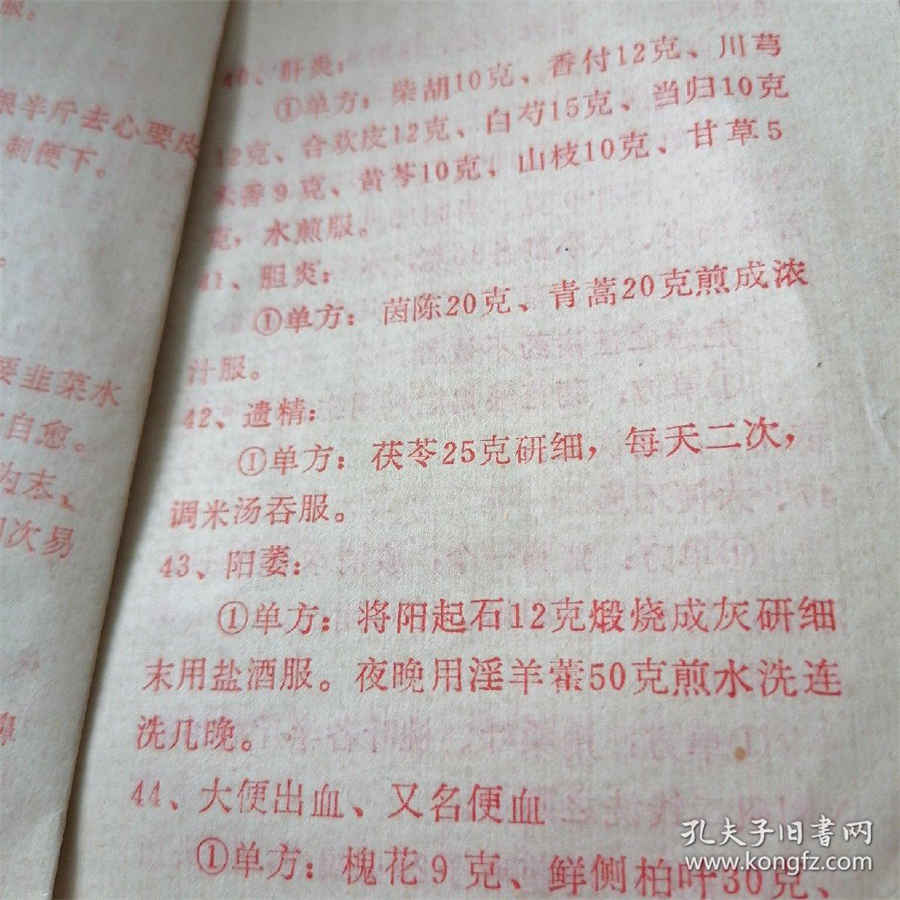 服。
根半斤去心要皮
制便下。
要韭菜水
自愈。
为志、
次易
40、肝炎：
①单方：柴胡10克、香付12克、川芎
12克、合欢皮12克、白芍15克、当归10克
木香9克、黄芩10克，山枝10克、甘草5
克，水煎服。
41、胆炎：
①单方：茵陈20克、青蒿20克煎成浓
汁服。
42、遗精：
①单方：茯苓25克研细，每天二次，
调米汤吞服。
43、阳萎：
①单方：将阳起石12克煅烧成灰研细
末用盐酒服。夜晚用淫羊藿50克煎水洗连
洗几晚。
44、大便出血、又名便血
①单方：槐花9克、鲜侧柏叶30克、
孔夫子旧书网
www.kongfz.com